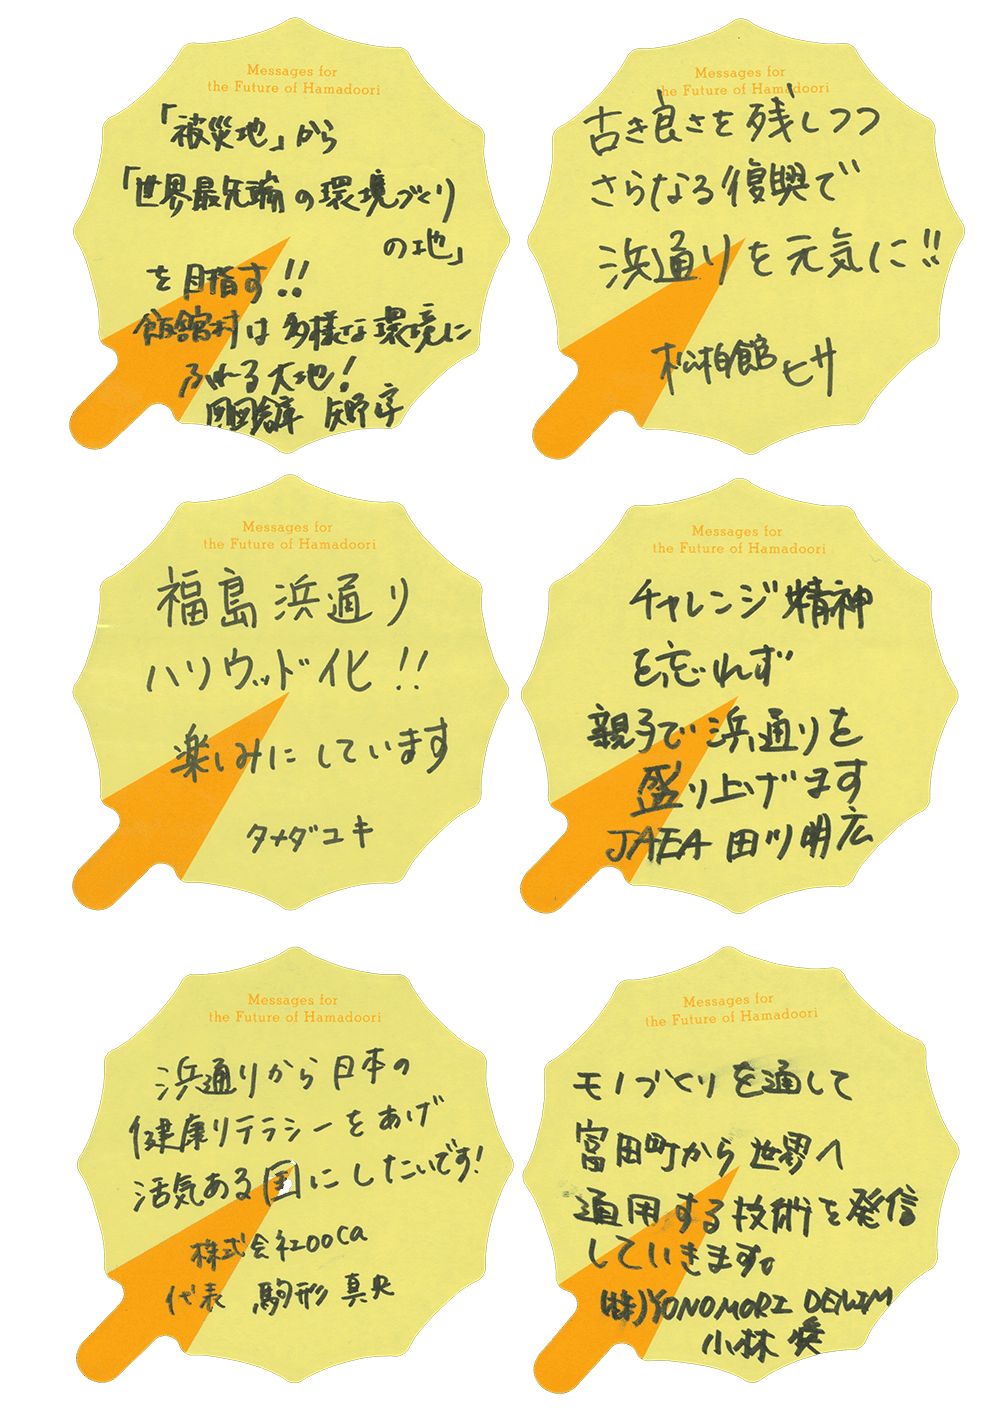 Messages for
the Future of Hamadoori
「被災地」から
「世界最先端の環境づくり
の地」
を目指す!!
飯舘村は多様な環境に
ふれる大地!
図図倉庫 矢野淳
Messages for
the Future of Hamadoori
古き良さを残しつつ
さらなる復興で
浜通りを元気に!!
松柏館 ヒサ
Messages for
the Future of Hamadoori
福島浜通り
ハリウッド化!!
楽しみにしています
タメダユキ
Messages for
the Future of Hamadoori
チャレンジ精神
を忘れず
親子で浜通りを
盛り上げます
JAEA 田川明広
Messages for
the Future of Hamadoori
浜通りから日本の
健康リテラシーをあげ
活気ある国にしたいです!
株式会社ooca
代表 駒形 真央
Messages for
the Future of Hamadoori
モノづくりを通して
富岡町から世界へ
通用する技術を発信
していきます。
(株)YONOMORI DENIM
小林 奨